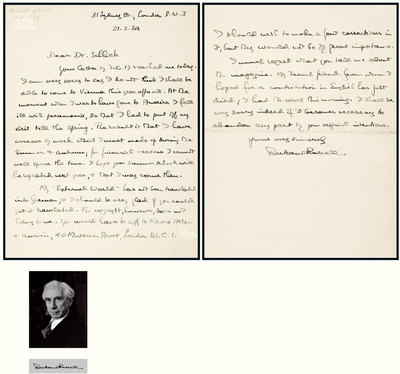 31 Sydney Str., London S.W.3
21.2.24
Dear Dr. Schlick
Your letter of Feb. 17 reached me today.
I am very sorry to say I do not think I shall be
able to come to Vienna this year after all. At the
moment when I was to have gone to America I fell
ill with pneumonia, so that I had to put off my
visit till the spring. The result is that I have
arrears of work which I must make up during the
Summer & autumn; for financial reasons I cannot
well spare the time. I hope your
be repeated next year, & that I may come then.
My "External World" has not been translated
into German, & I should be very glad if you could
get it translated. The copyright, however, does not
belong to me. You would have to apply to Messrs Allen
& Unwin, 40 Museum Street, London W.C.1.
I should wish to make a few corrections in
it, but they would not be of great importance.
I much regret what you tell me about
the magazine. My French friend from whom I
hoped for a contribution in English has just
died; I had the news this morning. I shall be
very sorry indeed if it becomes necessary to
abandon any part of your original intentions.
Yours very sincerely
Bertrand Russell
Bertrand Russell